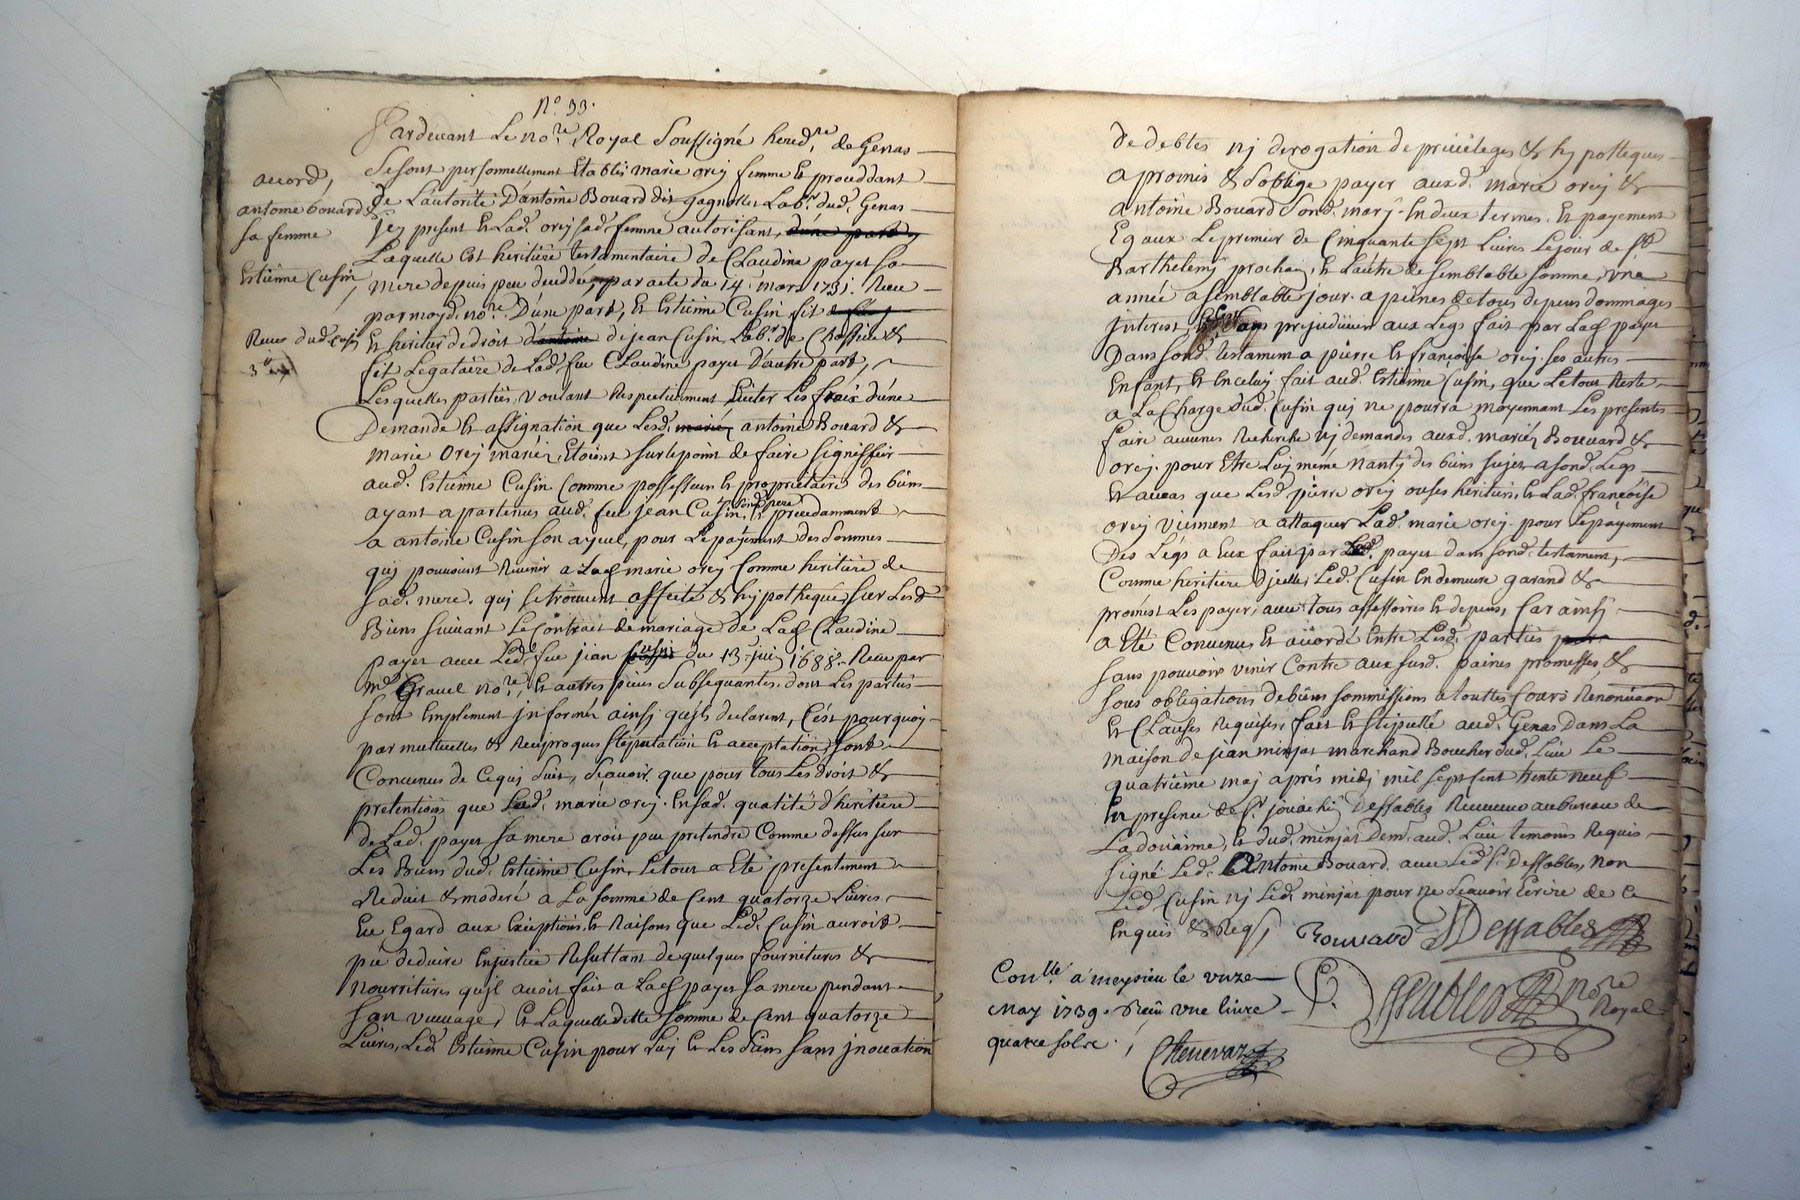 N.º 33.
Pardevant Le no.re Royal Soussigné hered.re de Genas
Se sont personnellement Etablis marie orey femme et procedant
de Lautorité D'antoine Bouard dit gagnollet Lab.r dud. Genas
jcy present et Lad. orey sad. femme autorisant, d'une part,
Laquelle est heritiere testamentaire de Claudine payet sa
mere depuis peu decedée, par acte du 14. mars 1731. Receu
par moyd. no.re D'une part, et Estienne Cusin fit
et heritier de droit d'antoine de jean Cusin Lab.r de Chassieu &
fit Legataire de Lad. feu Claudine payet d'autre part,
Lesquelles parties, voulant Respectivement eviter Les fraix d'une
Demande et assignation que Lesd. mariés antoine Bouard &
marie orey mariés, Etoient sur le point de faire signiffier
aud. Estienne Cusin Comme possesseur et proprietaire des biens
ayant apartenus aud. feu jean Cusin, son pere et precedamment
a antoine Cusin son ayeul, pour Le payement des sommes
quj pouvoient Revenir a Lad. marie orey Comme heritiere de
sad. mere, quj se trouvent affecté & hypothequé, sur Lesd.
Biens suivant Le Contrait de mariage de Lad. Claudine
payet avec Led. feu jean Cusin du 13. juin 1688. Receu par
m.e Gravel no.re, et autres pieces Subsequantes, dont Les parties
sont Emplement jnformés ainsi qu'jls declarent, C'est pourquoy
par mutuelles & Reciproques Stipulation et acceptation, sont
Convenus de Cequj Suit, Scavoir que pour tous Les droits &
pretentions que Lad. marie orey. En sad. qualité d'heritiere
de Lad. payet sa mere avoit peu pretendre Comme dessus sur
Les Biens dud. Estienne Cusin, Letout a Eté presentement
Reduit & moderé a La somme de Cent quatorze Livres,
Eu Egard aux Exceptions, et Raisons que Led. Cusin auroit
peu deduire En justice Resultant de quelques fournitures &
Nourritures qu'jl avoit fait a Lad. payet sa mere pendant
san veuvage, et Laquelle ditte somme de Cent quatorze
Livres, Led. Estienne Cusin pour Luy et Les siens sans jnovation
accord,
antoine bouard &
sa femme
Estienne Cusin,
Receu dud. Cusin
3tt
de debtes nj derogation de privileges & hypotteques
a promis & s'oblige payer auxd. marie orey &
antoine Bouard Sond. mary. En deux termes. et payement
Egaux Le premier de Cinquante sept Livres Le jour de S.t
Barthelemy prochain, et L'autre de semblable somme, une
année a semblable jour. a peines de tous depens dommages
jnterest, sans prejudicier aux Legs fait par Lad. payet
Dans sond. testament a pierre et françoise orey. ses autres
Enfant, et Enceluy fait aud. Estienne Cusin, que Letout Reste
a La Charge dud. Cusin quj ne pourra moyennant Les presentes
faire aucunes Recherche nj demandes auxd. mariés Bouvard &
orey. pour Etre Luy même Nanty des biens sujet a sond. Legs
Et au cas que Lesd. pierre orey ou ses heritiers, et Lad. françoise
orey viennent a attaquer Lad. marie orey pour Le payement
Des Legs a Eux fait par Lad. payet dans sond. testament,
Comme heritiere d'jcelle, Led. Cusin En demeure garand &
promest Les payer, avec tous assessoires et depens, Car ainsj
a Eté Convenus et accordé Entre Lesd. parties
sans pouvoir venir Contre aux susd. paines promesses, &
sous obligations de biens sommissions a touttes Cours Renonciaon
et Clauses Requises, fait et stipullé aud. Genas Dans La
maison de jean minjat marchand Boucher dud. Lieu Le
quatrième maj après midj mil sept cent trente neuf
En presence de S.r jouachi Dessables Receveur au bureau de
La doüanne, et dud. minjat dem.t aud. Lieu temoins Requis
signé Led. antoine Bouard. avec Led. S.r dessables, Non
Led. Cusin nj Led. minjat pour ne scavoir Ecrire de Ce
Enquis & Reqs,
Bouvard Dessables
no.re
Royal
Con.llé a meyzieu le unze
May 1739. Receu une livre
quatre sols.